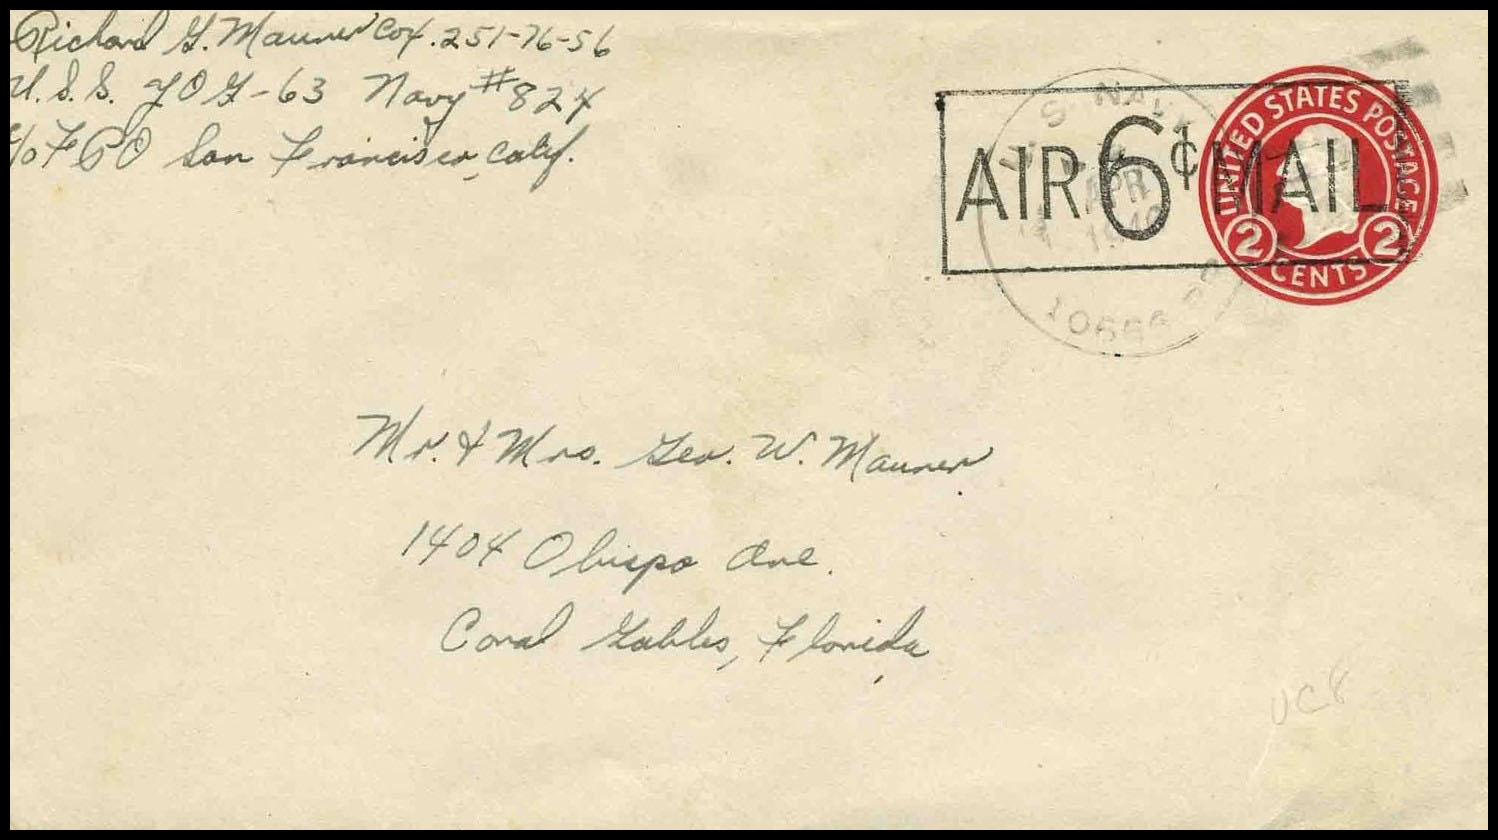 Richard G. Maurer Cox. 251-76-56
U.S.S. YOG-63 Navy #824
c/o FPO San Francisco, Calif.
U.S. NAVY
APR
10666
AIR 6¢ MAIL
UNITED STATES POSTAGE
2 CENTS 2
Mr. & Mrs. Geo. W. Maurer
1404 Obispo Ave.
Coral Gables, Florida
UC8